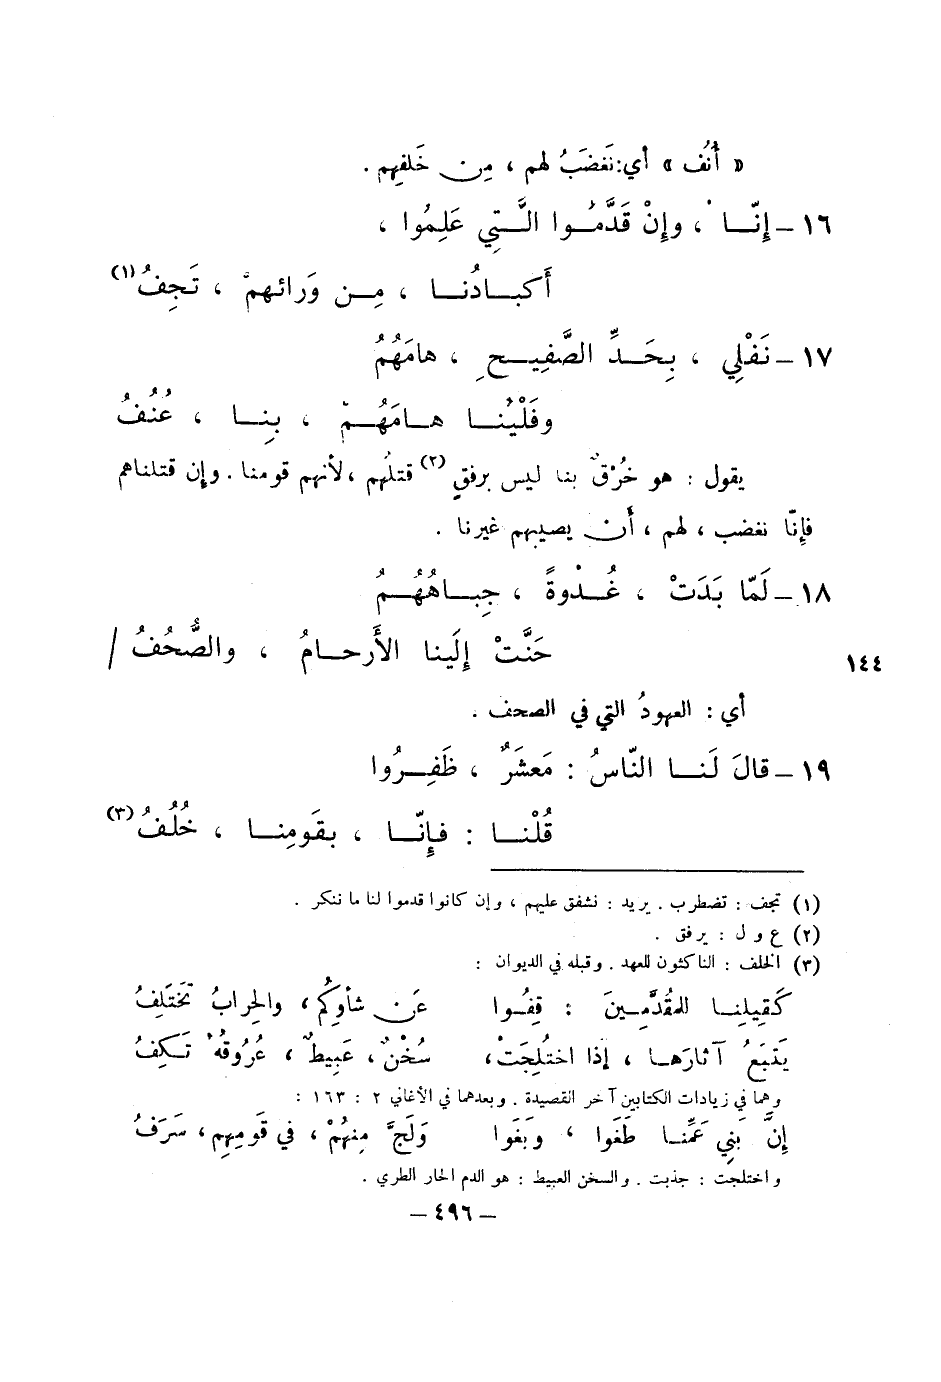 « أُنُف » أي: نَغضَبُ لهم ، مِن خَلفِهم .
١٦ – إنّا ، وإنْ قَدَّمُوا الَّتِي عَلِمُوا ،
أَكبادُنا ، مِن وَرائهمْ ، تَجِفُ (١)
١٧ – نَفْلِي ، بِحَدِّ الصَّفِيحِ ، هامَهُمُ
وفَلْيُنا هامَهُمْ ، بِنا ، عُنُفُ
يقول : هو خُرْقٌ بنا ليس برفقٍ (٢) قتلُهم ، لأنهم قومنا . وإن قتلناهم
فإنّا نغضب ، لهم ، أَن يصيبهم غيرنا .
١٨ – لَمّا بَدَتْ ، غُدْوةً ، جِباهُهُمُ
حَنَّتْ إلَينا الأَرحامُ ، والصُّحُفُ /
١٤٤
أي : العهودُ التي في الصحف .
١٩ – قالَ لَنا النّاسُ : مَعشَرٌ ، ظَفِرُوا
قُلْنا : فإنّا ، بقَومِنا ، خُلُفُ (٣)
(١) تجف : تضطرب . يريد : نشفق عليهم ، وإن كانوا قدموا لنا ما ننكر .
(٢) ع و ل : يرفق .
(٣) الخلف : الناكثون للعهد . وقبله في الديوان :
كَقِيلِنا للمُقدَّمِينَ : قِفُوا عَن شأوِكُم ، والحِرابُ تَختَلِفُ
يَتبَعُ آثارَها ، إذا اختُلِجَتْ ، سُخْنٌ ، عَبِيطٌ ، عُرُوقُهُ تَكِفُ
وهما في زيادات الكتابين آخر القصيدة . وبعدهما في الأغاني ٢ : ١٦٣ :
إنَّ بَنِي عَمِّنا طَغَوا ، وبَغَوا وَلَجَّ مِنهُمْ ، في قَومِهِم ، سَرَفُ
واختلجت : جذبت . والسخن العبيط : هو الدم الحار الطري .
– ٤٩٦ –